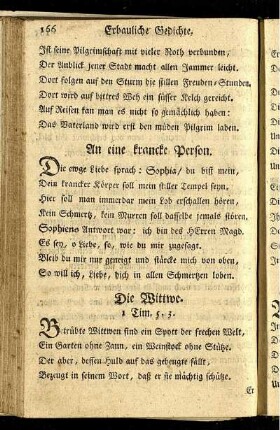 166 Erbauliche Gedichte.
Ist seine Pilgrimschafft mit vieler Noth verbunden,
Der Anblick jener Stadt macht allen Jammer leicht.
Dort folgen auf den Sturm die stillen Freuden-Stunden,
Dort wird auf bittres Weh ein süsser Kelch gereicht.
Auf Reisen kan man es nicht so gemächlich haben:
Das Vaterland wird erst den müden Pilgrim laben.
An eine krancke Person.
Die ewge Liebe sprach: Sophia/ du bist mein,
Dein krancker Körper soll mein stiller Tempel seyn.
Hier soll man immerdar mein Lob erschallen hören,
Kein Schmertz, kein Murren soll dasselbe jemals stören.
Sophiens Antwort war: ich bin des HErren Magd.
Es sey, o Liebe, so, wie du mir zugesagt.
Bleib du mir nur geneigt und stärcke mich von oben,
So will ich, Liebe, dich in allen Schmertzen loben.
Die Wittwe.
1 Tim. 5. 3.
Betrübte Wittwen sind ein Spott der frechen Welt,
Ein Garten ohne Zaun, ein Weinstock ohne Stütze.
Der aber, dessen Huld auf das gebeugte fällt,
Bezeugt in seinem Wort, daß er sie mächtig schütze.
Er